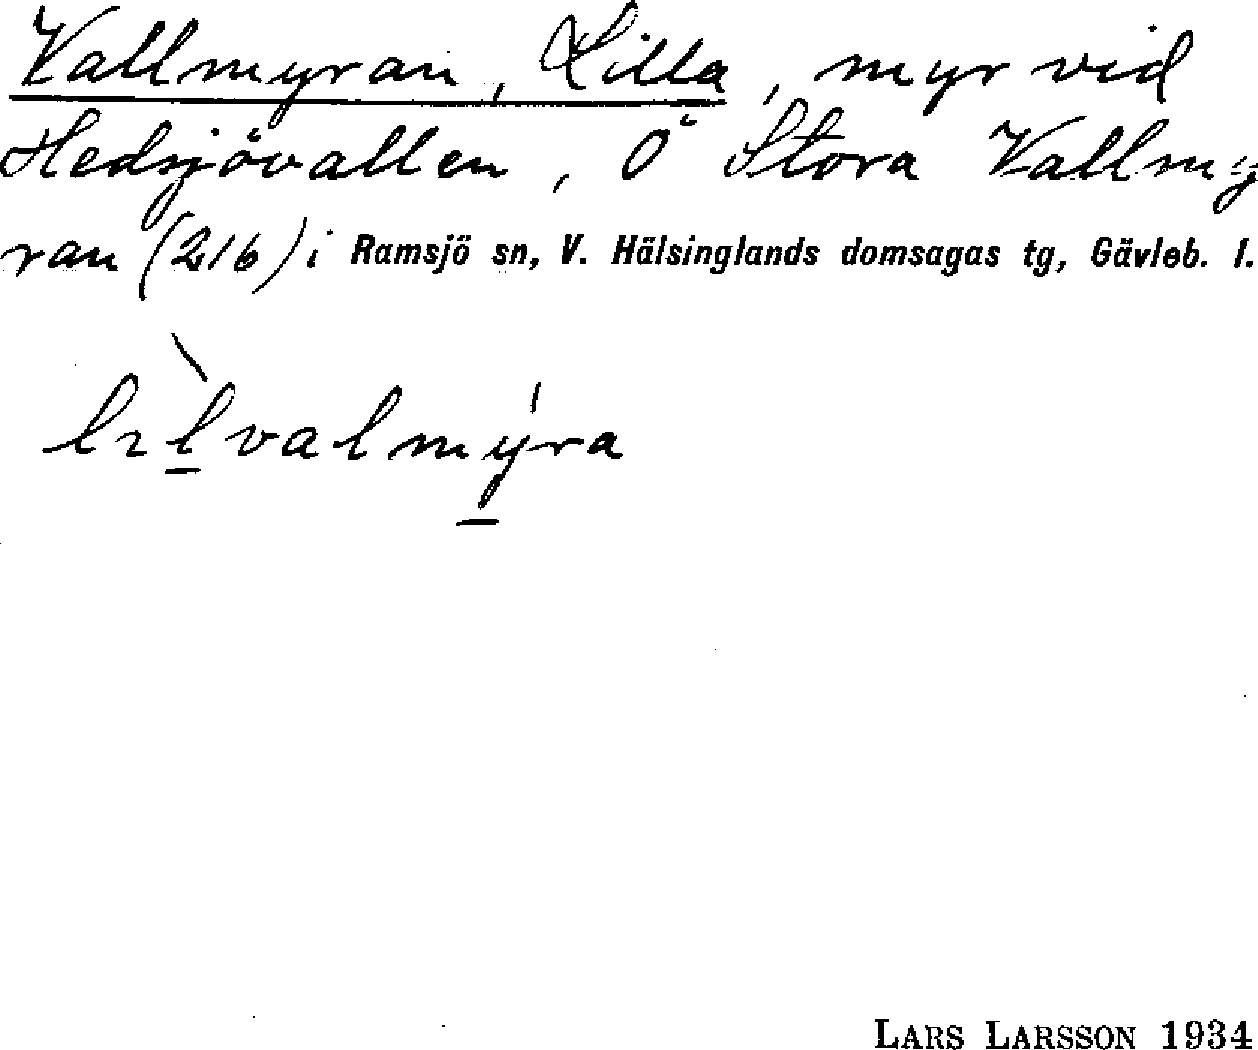 Vallmyran, Lilla, myr vid
Hedsjövallen, Ö Stora Vallmy
ran (216) i Ramsjö sn, V. Hälsinglands domsagas tg, Gävleb. l.
lɩ̀lvalmýra
LARS LARSSON 1934